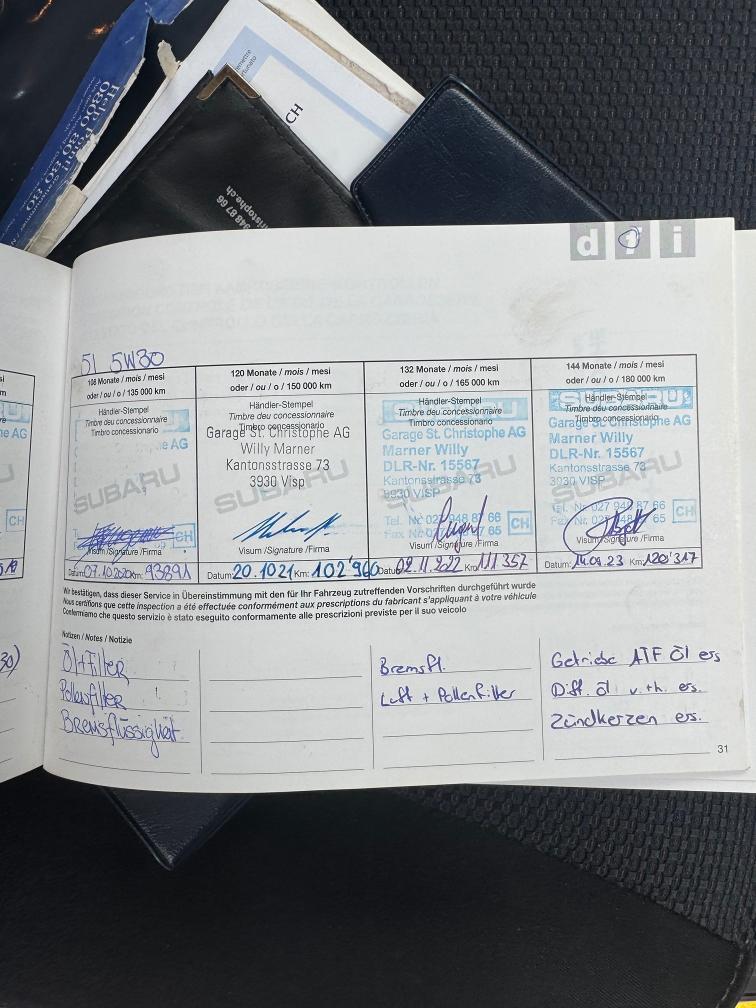 CH
948 87 66
istophe.ch
d i i
5l 5W30
108 Monate / mois / mesi
oder / ou / o / 135 000 km
Händler-Stempel
Timbre du concessionnaire
Timbro concessionario
e AG
SUBARU
CH
Visum /Signature /Firma
Datum: 07.10.2020 Km: 93891
120 Monate / mois / mesi
oder / ou / o / 150 000 km
Händler-Stempel
Timbre du concessionnaire
Timbro concessionario
Garage St. Christophe AG
Willy Marner
Kantonsstrasse 73
3930 Visp
SUBARU
Visum /Signature /Firma
Datum: 20.10 21 Km: 102'960
132 Monate / mois / mesi
oder / ou / o / 165 000 km
Händler-Stempel
Timbre du concessionnaire
Timbro concessionario
Garage St. Christophe AG
Marner Willy
DLR-Nr. 15567
Kantonsstrasse 73
3930 VISP
SUBARU
Tel. Nr. 027 948 87 66
CH
Visum /Signature /Firma
Datum: 02.11.2022 Km: 111'357
144 Monate / mois / mesi
oder / ou / o / 180 000 km
SUBARU
Händler-Stempel
Timbre du concessionnaire
Timbro concessionario
Garage St. Christophe AG
Marner Willy
DLR-Nr. 15567
Kantonsstrasse 73
3930 VISP
SUBARU
Tel. Nr. 027 948 87 66
CH
Visum /Signature /Firma
Datum: 14.09.23 Km: 120'317
Wir bestätigen, dass dieser Service in Übereinstimmung mit den für Ihr Fahrzeug zutreffenden Vorschriften durchgeführt wurde
Nous certifions que cette inspection a été effectuée conformément aux prescriptions du fabricant s'appliquant à votre véhicule
Confermiamo che questo servizio è stato eseguito conformemente alle prescrizioni previste per il suo veicolo
Notizen / Notes / Notizie
Ölfilter
Pollenfilter
Bremsflüssigkeit
Bremsfl.
Luft + Pollenfilter
Getriebe ATF Öl ers
Diff. öl v. + h. ers.
Zündkerzen ers.
31